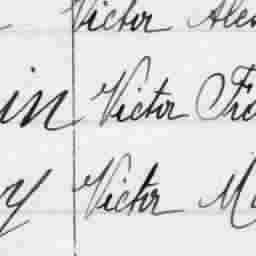 Victor Ale
in Victor Fra
y Victor Ma